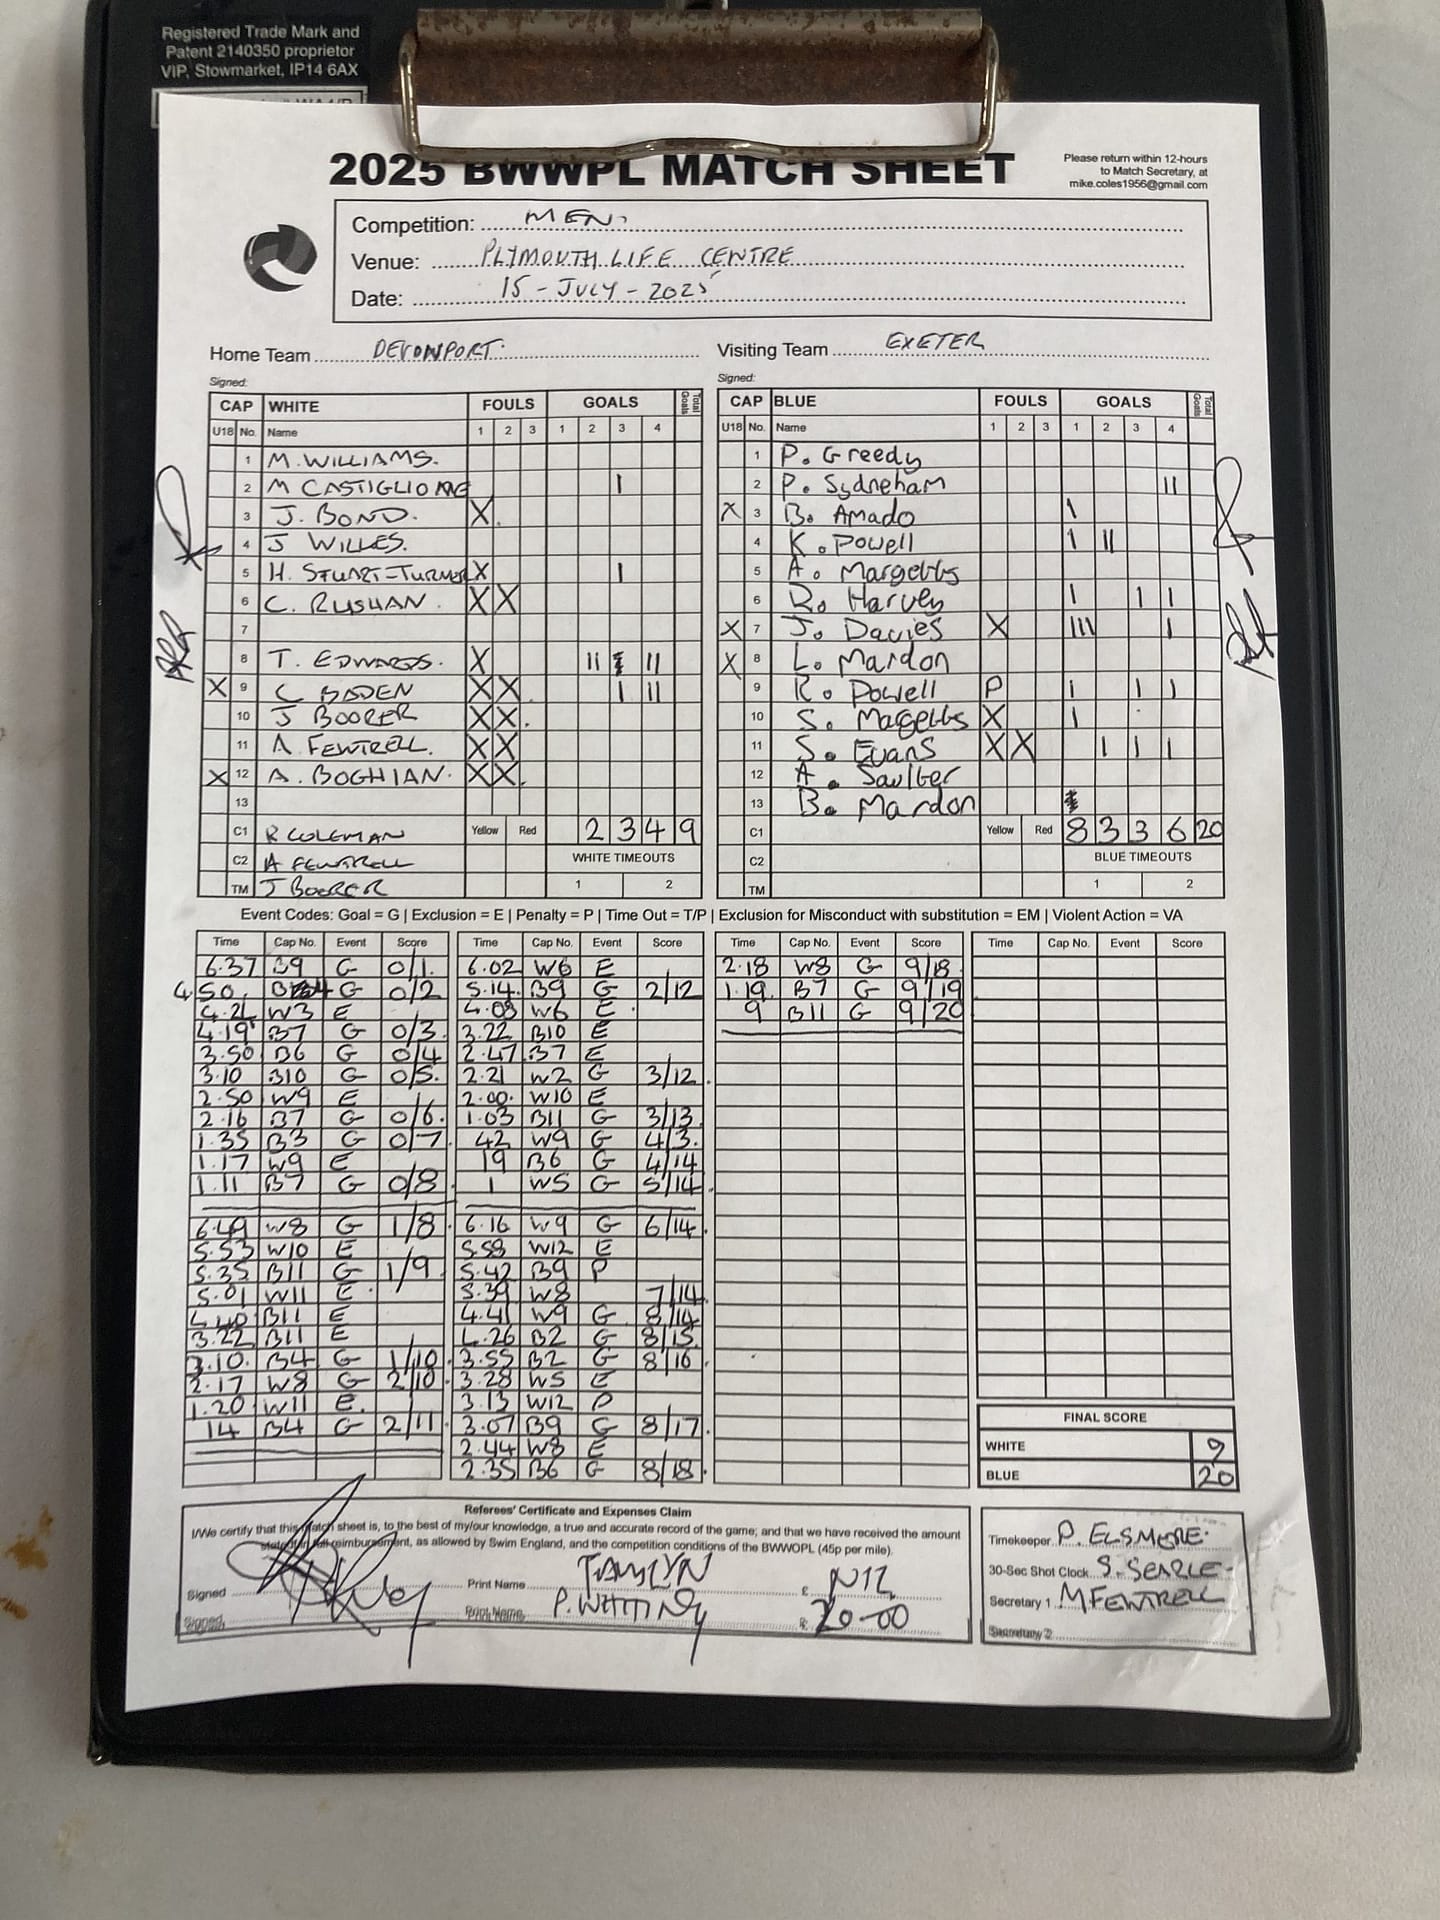 Registered Trade Mark and
Patent 2140350 proprietor
VIP, Stowmarket, IP14 6AX
2025 BWWPL MATCH SHEET
Please return within 12-hours
to Match Secretary, at
mike.coles1956@gmail.com
Competition: MEN.
Venue: PLYMOUTH LIFE CENTRE
Date: 15 - JULY - 2025
Home Team DEVONPORT.
Visiting Team EXETER
Signed:
Signed:
CAP WHITE FOULS GOALS Total Goals
U18 No. Name 1 2 3 1 2 3 4
1 M. WILLIAMS.
2 M CASTIGLIONE I
3 J. BOND. X
4 J WILLES.
5 H. STUART-TURNER X I
6 C. RUSHAN. X X
7
8 T. EDWARDS. X II II
X 9 C BADEN X X I II
10 J BOORER X X
11 A. FEWTRELL. X X
X 12 A. BOGHIAN. X X
13
C1 R COLEMAN Yellow Red 2 3 4 9
C2 A FEWTRELL WHITE TIMEOUTS
TM J BOORER 1 2
CAP BLUE FOULS GOALS Total Goals
U18 No. Name 1 2 3 1 2 3 4
1 P. Greedy
2 P. Sydneham II
X 3 B. Amado I
4 K. Powell I II
5 A. Margetts
6 R. Harvey I I I
X 7 J. Davies X III I
X 8 L. Mardon
9 R. Powell P I I I
10 S. Margetts X I
11 S. Evans X X I I I
12 A. Saulter
13 B. Mardon
C1 Yellow Red 8 3 3 6 20
C2 BLUE TIMEOUTS
TM 1 2
Event Codes: Goal = G | Exclusion = E | Penalty = P | Time Out = T/P | Exclusion for Misconduct with substitution = EM | Violent Action = VA
Time Cap No. Event Score
6.37 B9 G 0/1.
4.50. B4 G 0/2
4.21 W3 E
4.19 B7 G 0/3
3.50 B6 G 0/4
3.10 B10 G 0/5.
2.50 W9 E
2.16 B7 G 0/6.
1.35 B3 G 0/7
1.17 W9 E
1.11 B7 G 0/8
6.49 W8 G 1/8
5.53 W10 E
5.35 B11 G 1/9
5.01 W11 E
4.40 B11 E
3.22 B11 E
3.10. B4 G 1/10
2.17 W8 G 2/10
1.20 W11 E.
14 B4 G 2/11
Time Cap No. Event Score
6.02 W6 E
5.14. B9 G 2/12
4.08 W6 E
3.22 B10 E
2.47 B7 E
2.21 W2 G 3/12
2.00. W10 E
1.03 B11 G 3/13
42 W9 G 4/3.
19 B6 G 4/14
1 W5 G 5/14
6.16 W9 G 6/14
5.58 W12 E
5.42 B9 P
5.39 W8 7/14
4.41 W9 G 8/14
4.26 B2 G 8/15
3.55 B2 G 8/16
3.28 W5 E
3.13 W12 P
3.07 B9 G 8/17
2.44 W8 E
2.35 B6 G 8/18
Time Cap No. Event Score
2.18 W8 G 9/18
1.19 B7 G 9/19
9 B11 G 9/20
Time Cap No. Event Score
FINAL SCORE
WHITE 9
BLUE 20
Referees' Certificate and Expenses Claim
I/We certify that this match sheet is, to the best of my/our knowledge, a true and accurate record of the game; and that we have received the amount
stated in full reimbursement, as allowed by Swim England, and the competition conditions of the BWWOPL (45p per mile).
Signed Print Name TAMLYN £ NIL
Signed Print Name P. WHITING £ 20-00
Timekeeper P. ELSMORE.
30-Sec Shot Clock S. SEARLE
Secretary 1 M FEWTRELL
Secretary 2